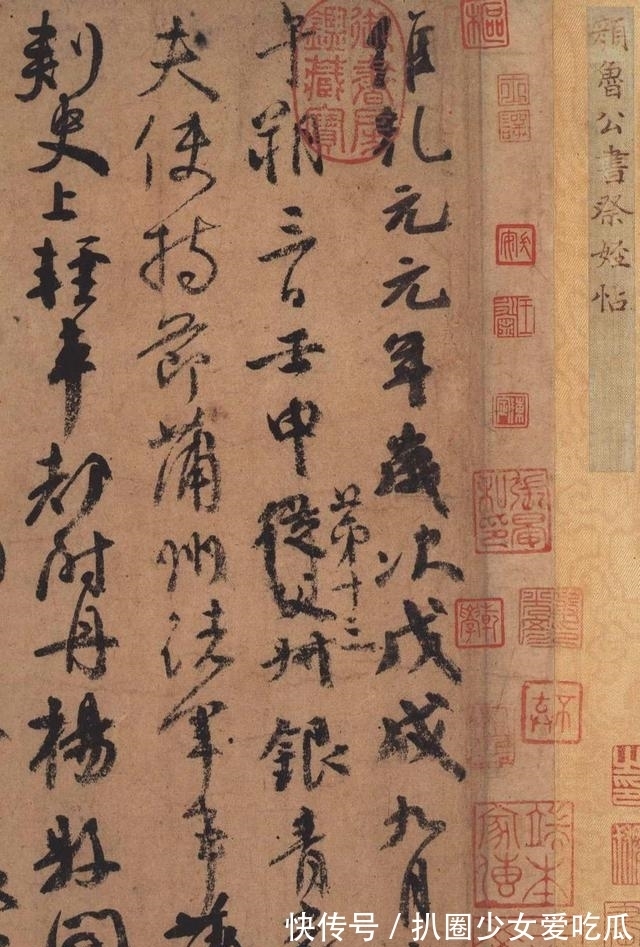 顏魯公書祭姪帖
維乾元元年歲次戊戌九月
午朔三日壬申從父叔銀青
第十三
夫使持節蒲州諸軍事蒲
刺史上輕車都尉丹楊縣開
御書房鑑藏寶
張晏私印
端本家傳
快传号 / 扒圈少女爱吃瓜